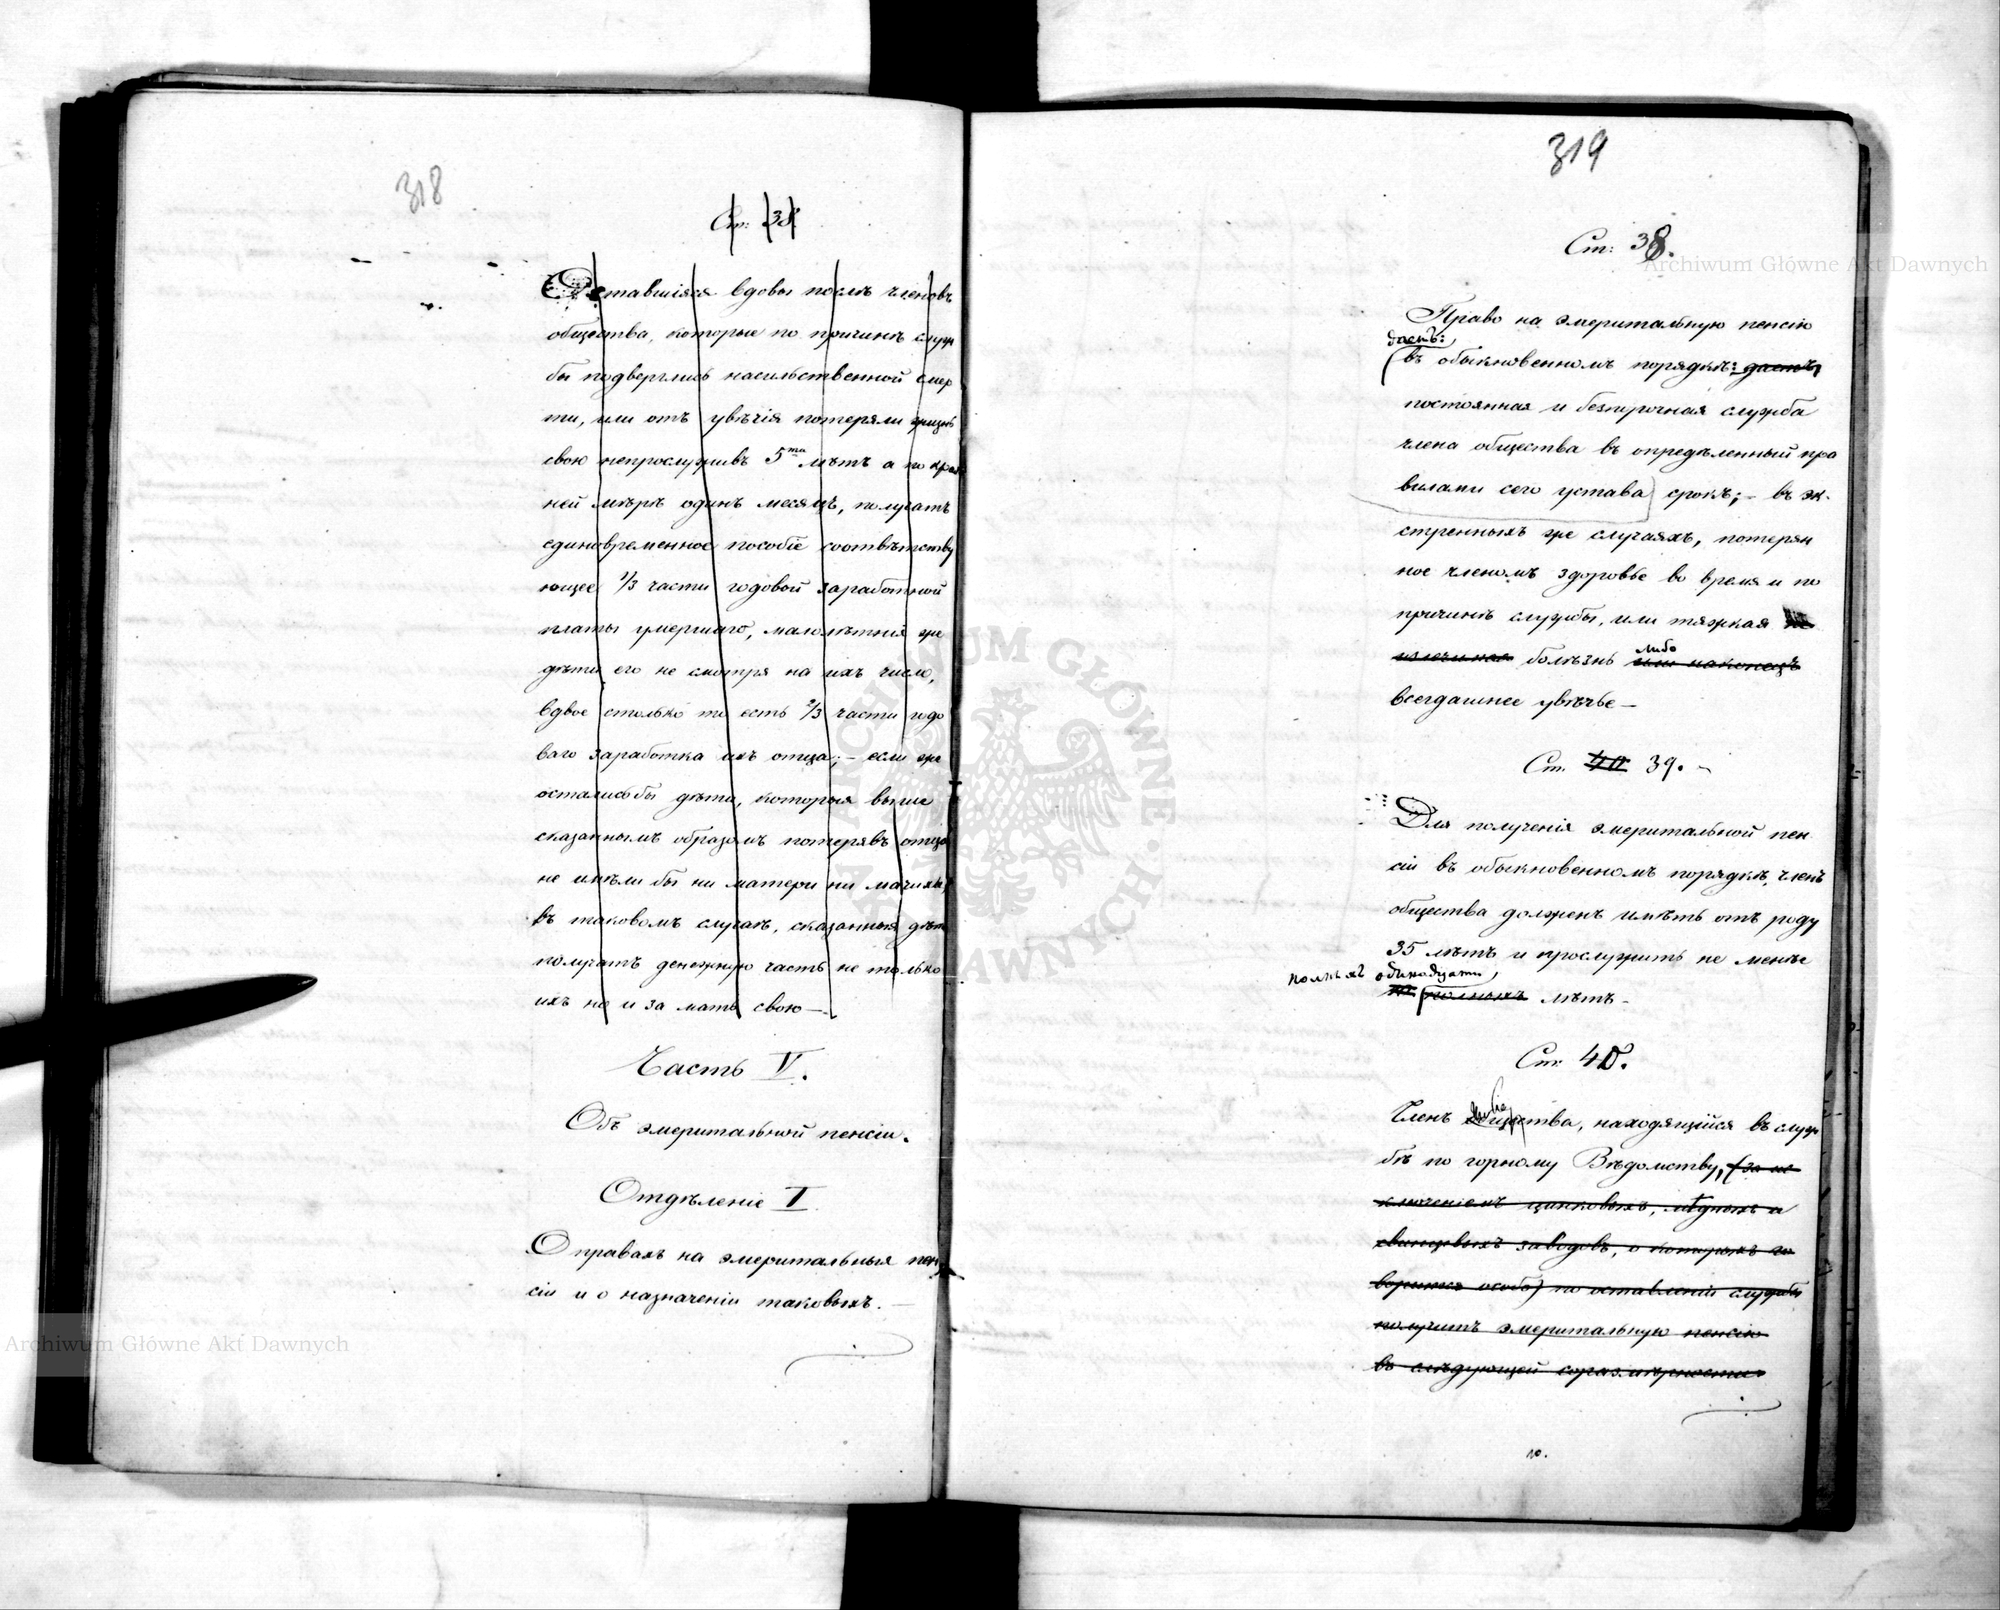 318
Ст: 38
Оставшіяся вдовы послѣ членовъ
общества, которые по причинѣ служ
бы подверглись насильственной смер
ти, или отъ увѣчія потеряли жизнь
свою непрослуживъ 5ти лѣтъ а по край
ней мѣрѣ одинъ месяцъ, получатъ
единовременное пособіе соотвѣтству
ющее 1/3 части годовой заработной
платы умершаго, малолѣтнія же
дѣти его не смотря на ихъ число,
вдвое столько то есть 2/3 части годо
ваго заработка ихъ отца; – если же
осталисьбы дѣти, которыя выше
сказаннымъ образомъ потерявъ отца
не имѣли бы ни матери ни мачихи,
въ таковомъ случаѣ, сказанныя дѣти
получатъ денежную часть не только
ихъ но и за мать свою —
Часть V.
Объ эмеритальной пенсіи.
Отдѣленіе I
О правахъ на эмеритальныя пен
сіи и о назначеніи таковыхъ. —
319
Ст: 38.
Право на эмеритальную пенсію
даетъ:
въ обыкновенномъ порядкѣ: даетъ
постоянная и безпорочная служба
члена общества въ опредѣленный пра
вилами сего устава срокъ; – въ эк-
стренныхъ же случаяхъ, потерян
ное членомъ здоровье во время и по
причинѣ службы, или тяжкая не
либо
излечимая болѣзнь или наконецъ
всегдашнее увѣчье —
Ст. 40 39. –
Для получения эмеритальной пен
сіи въ обыкновенномъ порядкѣ, членъ
общества долженъ имѣть отъ роду
35 лѣтъ и прослужить не менѣе
полныхъ одинадцати
полныхъ лѣтъ –
Ст: 40.
Членъ общества, находящійся въ служ
бѣ по горному Вѣдомству, (за ис
ключеніемъ цинковыхъ, мѣдныхъ и
свинцовыхъ заводовъ, о которыхъ го
ворится особо) по оставленіи службы
получитъ эмеритальную пенсію
въ слѣдующей соразмѣрности
10.
Archiwum Główne Akt Dawnych
Archiwum Główne Akt Dawnych
ARCHIWUM GŁÓWNE AKT DAWNYCH